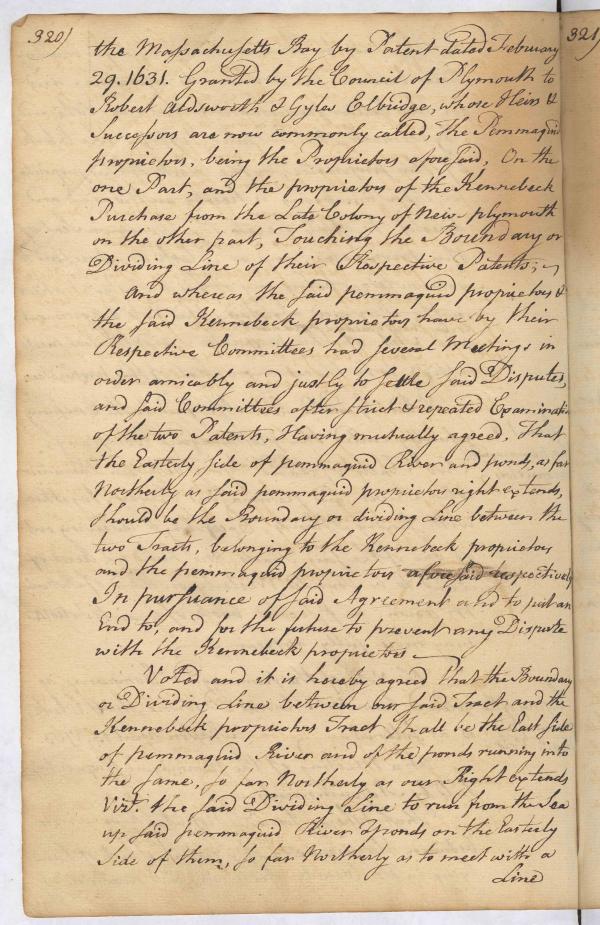 320)
321)
the Massachusetts Bay by Patent dated February
29. 1631. Granted by the Council of Plymouth to
Robert Aldsworth & Gyles Elbridge, whose Heirs &
Successors are now commonly called, the Pemmaquid
proprietors, being the Proprietors aforesaid, On the
one Part, and the proprietors of the Kennebeck
Purchase from the Late Colony of New-plymouth
on the other part, Touching the Boundary or
Dividing Line of their Respective Patents;
And whereas the said pemmaquid proprietors &
the said Kennebeck proprietors have by their
Respective Committees had several Meetings in
order amicably and justly to settle said Disputes,
and said Committees after strict & repeated Examination
of the two Patents, Having mutually agreed, That
the Easterly side of pemmaquid River and ponds, as far
Northerly as said pemmaquid proprietors right extends,
should be the Boundary or dividing Line between the
two Tracts, belonging to the Kennebeck proprietors
and the pemmaquid proprietors aforesaid respectively
In pursuance of said Agreement and to put an
End to, and for the future to prevent any Dispute
with the Kennebeck proprietors
Voted and it is hereby agreed that the Boundary
or Dividing Line between our said Tract and the
Kennebeck proprietors Tract shall be the East side
of pemmaquid River and of the ponds running into
the same, so far Northerly as our Right extends
Vizt. the said Dividing Line to run from the Sea
up said pemmaquid River & ponds on the Easterly
side of them, so far Northerly as to meet with a
Line